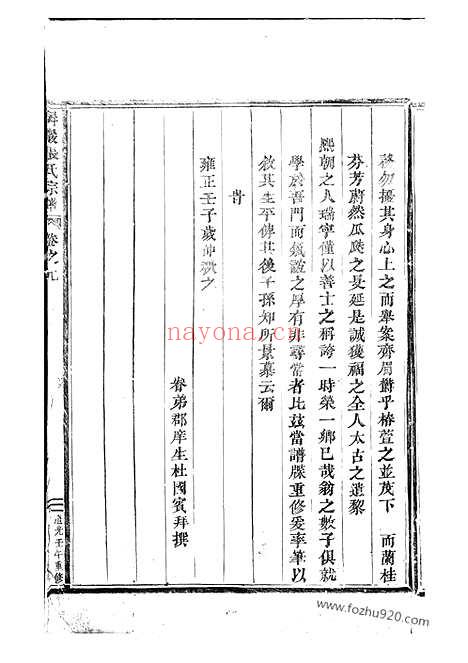 務勿擾其身心上之而舉案齊眉欝乎椿萱之並茂下　而蘭桂
芬芳蔚然瓜瓞之旻延是誠獲福之全人太古之遺黎
熈朝之人瑞寧僅以善士之稱誇一時榮一鄉已哉翁之數子俱就
學於吾門而氣誼之厚有非尋常者比茲當譜牒重修爰率筆以
敘其生平傳其後子孫知所景慕云爾
旹
雍正壬子歲仲秋之
眷弟郡庠生杜國賓拜撰
張氏宗譜
卷之九
道光壬午重修
nayona.cn
www.fozhu920.com